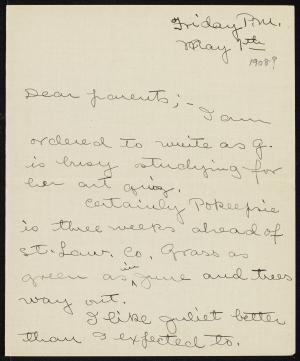 Friday P.M.
May 1th
1908?
Dear parents; - I am
ordered to write as G.
is busy studying for
her art quiz.
Certainly Pokeepsie
is three weeks ahead of
St. Law. Co. Grass as
green as in June and trees
way out.
I like Juliet better
than I expected to.